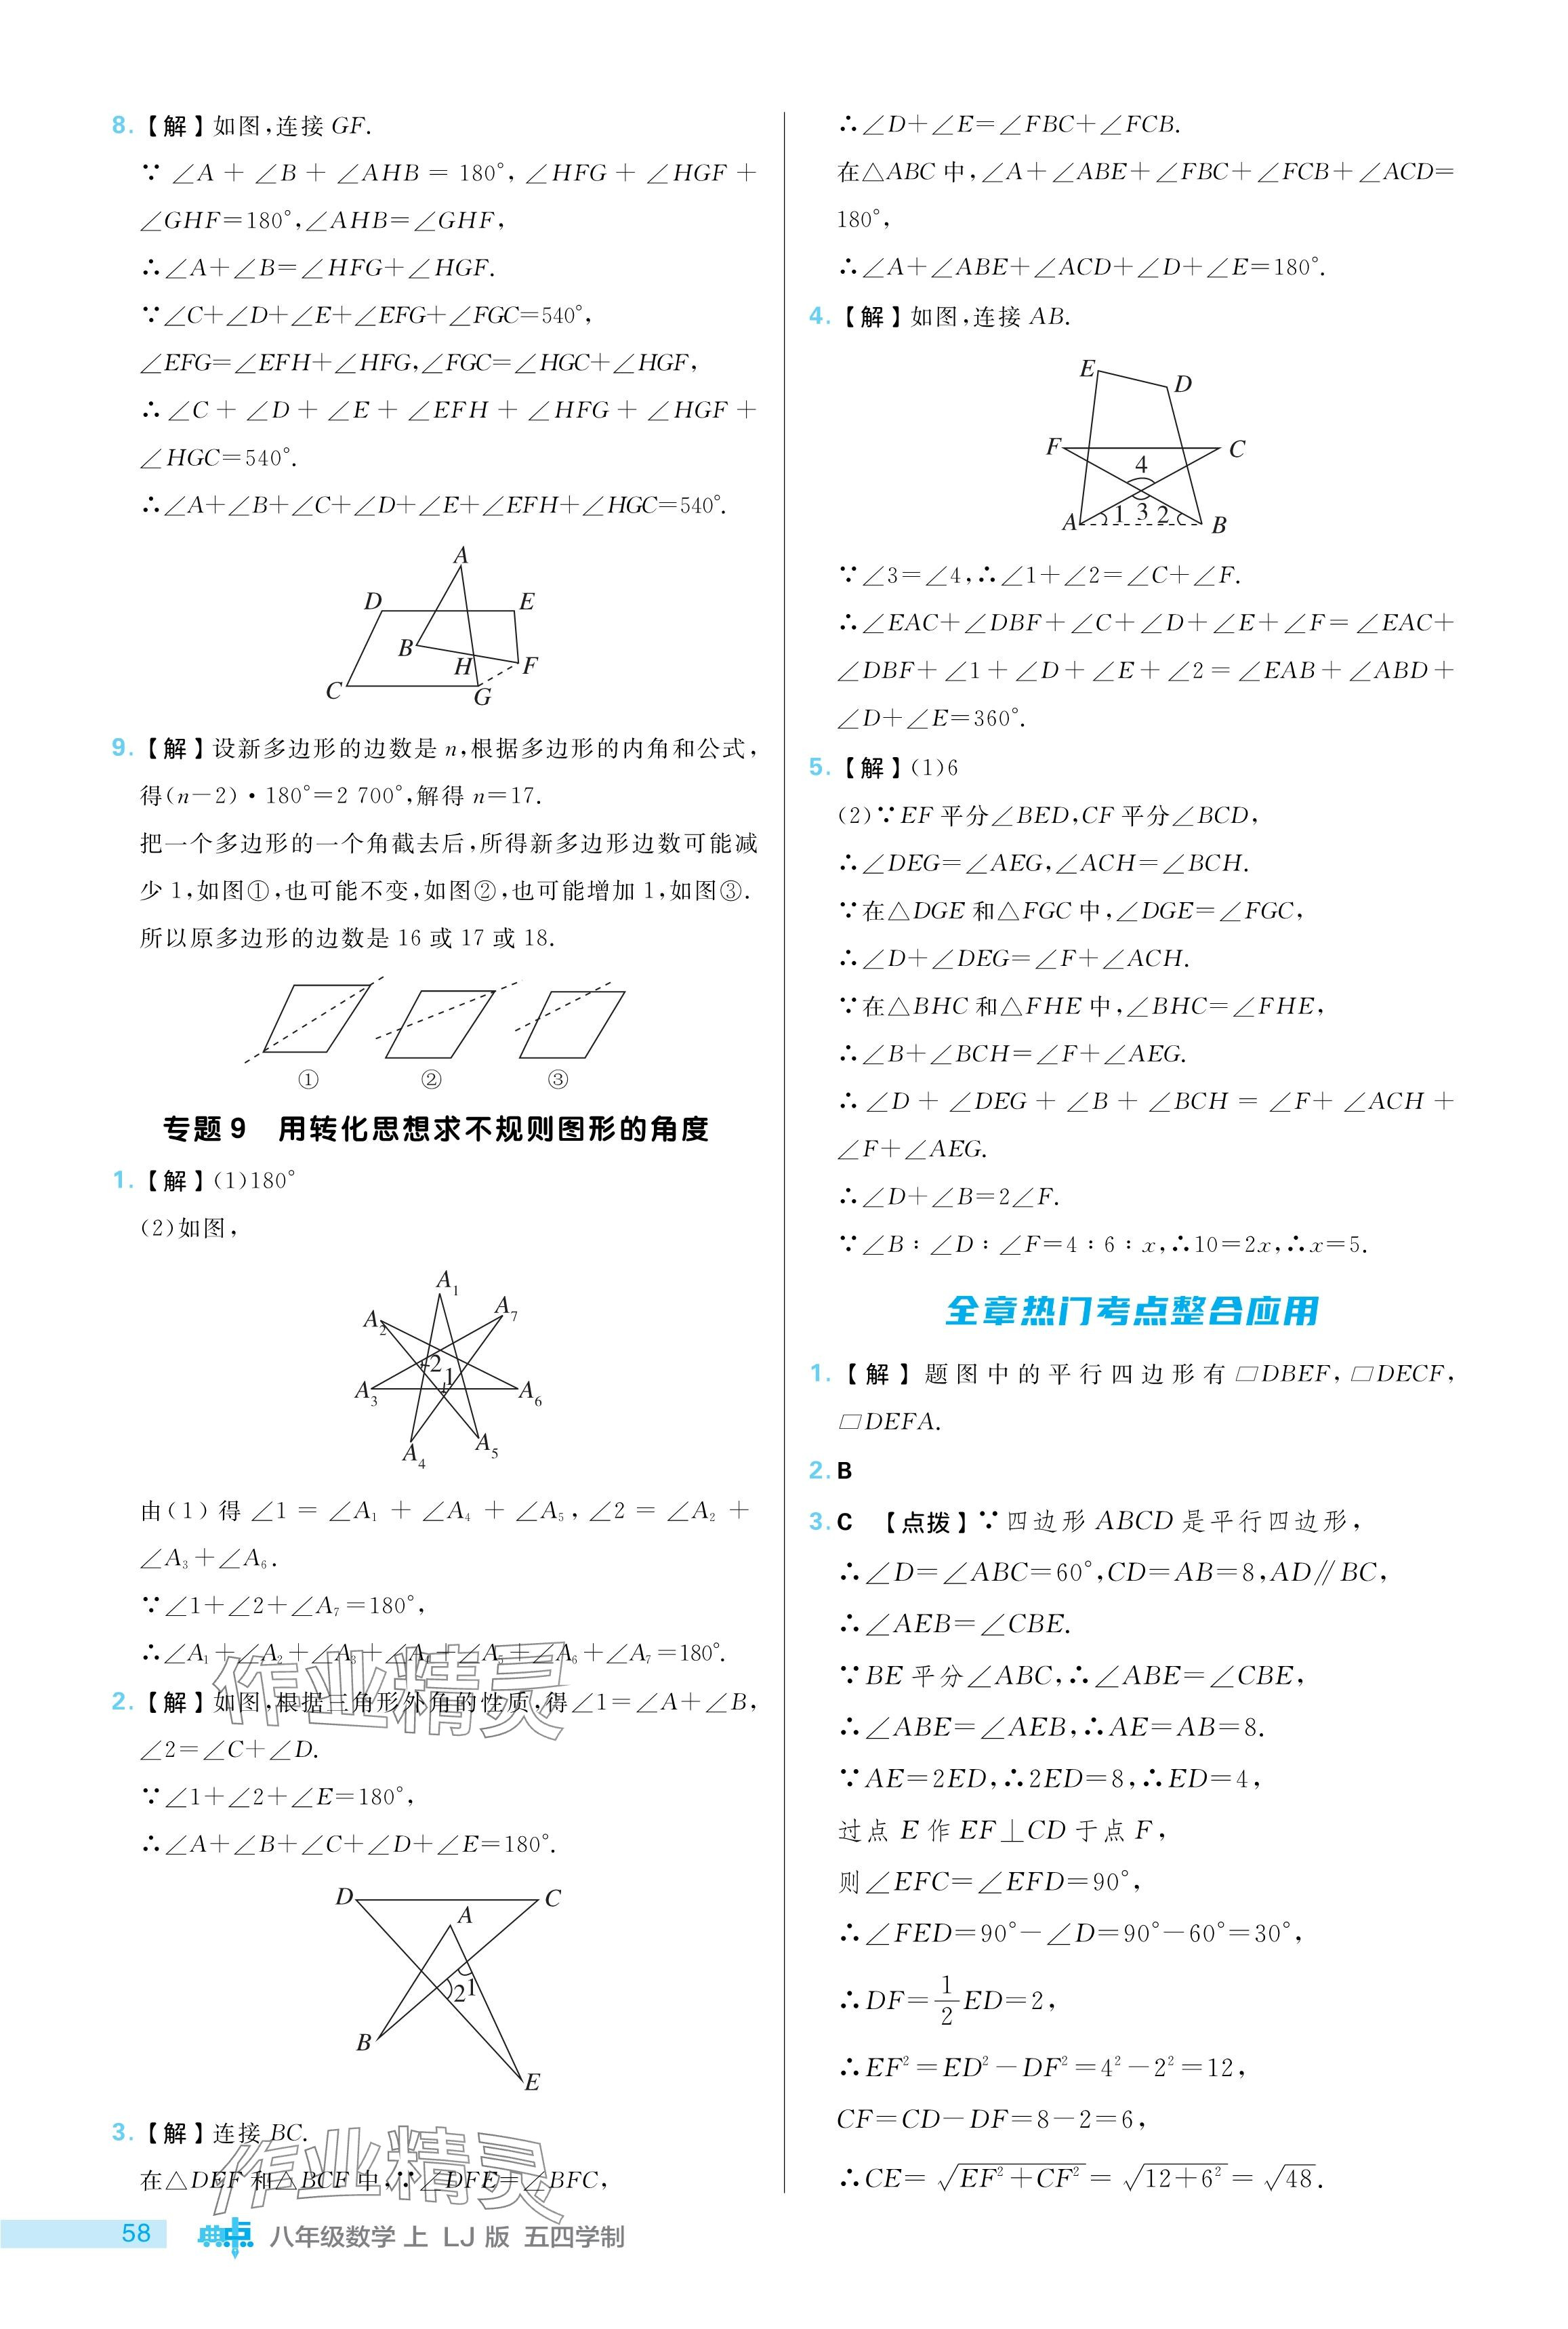 8.【解】如图,连接 GF.
∵ ∠A + ∠B + ∠AHB = 180°, ∠HFG + ∠HGF +
∠GHF=180°,∠AHB=∠GHF,
∴∠A+∠B=∠HFG+∠HGF.
∵∠C+∠D+∠E+∠EFG+∠FGC=540°,
∠EFG=∠EFH+∠HFG,∠FGC=∠HGC+∠HGF,
∴ ∠C + ∠D + ∠E + ∠EFH + ∠HFG + ∠HGF +
∠HGC=540°.
∴∠A+∠B+∠C+∠D+∠E+∠EFH+∠HGC=540°.
A
D
E
B
H
F
C
G
9.【解】设新多边形的边数是 n,根据多边形的内角和公式,
得(n-2)·180°=2 700°,解得 n=17.
把一个多边形的一个角截去后,所得新多边形边数可能减
少 1,如图①,也可能不变,如图②,也可能增加 1,如图③.
所以原多边形的边数是 16 或 17 或 18.
① ② ③
专题 9 用转化思想求不规则图形的角度
1.【解】(1)180°
(2)如图,
A₁
A₇
A₂
2
1
A₃
A₆
A₅
A₄
由(1) 得 ∠1 = ∠A₁ + ∠A₄ + ∠A₅, ∠2 = ∠A₂ +
∠A₃+∠A₆.
∵∠1+∠2+∠A₇=180°,
∴∠A₁+∠A₂+∠A₃+∠A₄+∠A₅+∠A₆+∠A₇=180°.
2.【解】如图,根据三角形外角的性质,得∠1=∠A+∠B,
∠2=∠C+∠D.
∵∠1+∠2+∠E=180°,
∴∠A+∠B+∠C+∠D+∠E=180°.
D
C
A
21
B
E
3.【解】连接 BC.
在△DEF 和△BCF 中,∵∠DFE=∠BFC,
作业精灵
作业精灵
∴∠D+∠E=∠FBC+∠FCB.
在△ABC 中,∠A+∠ABE+∠FBC+∠FCB+∠ACD=
180°,
∴∠A+∠ABE+∠ACD+∠D+∠E=180°.
4.【解】如图,连接 AB.
E
D
F
C
4
A
1 3 2
B
∵∠3=∠4,∴∠1+∠2=∠C+∠F.
∴∠EAC+∠DBF+∠C+∠D+∠E+∠F=∠EAC+
∠DBF+∠1+∠D+∠E+∠2=∠EAB+∠ABD+
∠D+∠E=360°.
5.【解】(1)6
(2)∵EF 平分∠BED,CF 平分∠BCD,
∴∠DEG=∠AEG,∠ACH=∠BCH.
∵在△DGE 和△FGC 中,∠DGE=∠FGC,
∴∠D+∠DEG=∠F+∠ACH.
∵在△BHC 和△FHE 中,∠BHC=∠FHE,
∴∠B+∠BCH=∠F+∠AEG.
∴ ∠D + ∠DEG + ∠B + ∠BCH = ∠F+ ∠ACH +
∠F+∠AEG.
∴∠D+∠B=2∠F.
∵∠B:∠D:∠F=4:6:x,∴10=2x,∴x=5.
全章热门考点整合应用
1.【解】题图中的平行四边形有▱DBEF,▱DECF,
▱DEFA.
2.B
3.C 【点拨】∵四边形 ABCD 是平行四边形,
∴∠D=∠ABC=60°,CD=AB=8,AD∥BC,
∴∠AEB=∠CBE.
∵BE 平分∠ABC,∴∠ABE=∠CBE,
∴∠ABE=∠AEB,∴AE=AB=8.
∵AE=2ED,∴2ED=8,∴ED=4,
过点 E 作 EF⊥CD 于点 F,
则∠EFC=∠EFD=90°,
∴∠FED=90°-∠D=90°-60°=30°,
∴DF=1/2ED=2,
∴EF²=ED²-DF²=4²-2²=12,
CF=CD-DF=8-2=6,
∴CE=√(EF²+CF²)=√(12+6²)=√48.
58 典中点 八年级数学 上 LJ 版 五四学制